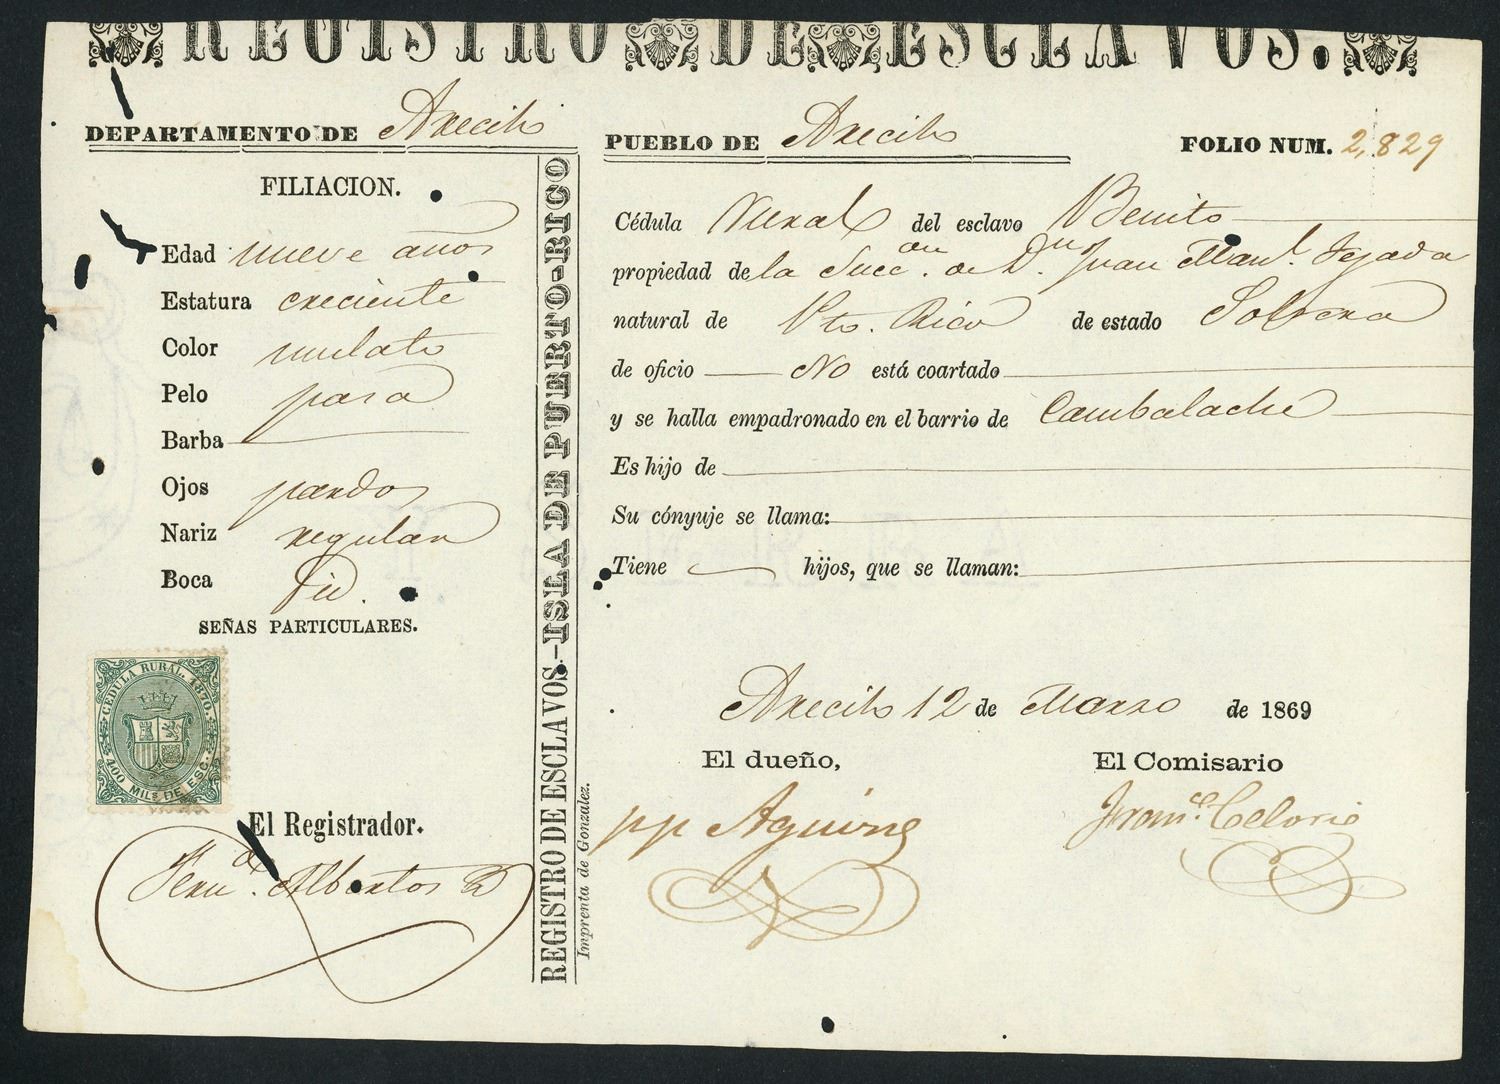 REGISTRO DE ESCLAVOS.
DEPARTAMENTO DE Arecibo
PUEBLO DE Arecibo
FOLIO NUM. 2,829
FILIACION.
Edad nueve años
Estatura creciente
Color mulato
Pelo pasa
Barba
Ojos pardos
Nariz regular
Boca id.
SEÑAS PARTICULARES.
CEDULA RURAL. 1870.
400 MILS DE ESC.
El Registrador.
Ferndo. Albertos
REGISTRO DE ESCLAVOS.-ISLA DE PUERTO-RICO
Imprenta de Gonzalez.
Cédula Rural del esclavo Benito
propiedad de la Succon. de Dn Juan Manl. Tejada
natural de Pto. Rico de estado Soltero
de oficio No está coartado
y se halla empadronado en el barrio de Cambalache
Es hijo de
Su cónyuje se llama:
Tiene hijos, que se llaman:
Arecibo 12 de Marzo de 1869
El dueño,
El Comisario
pp Aguirre
Francº. Celorio